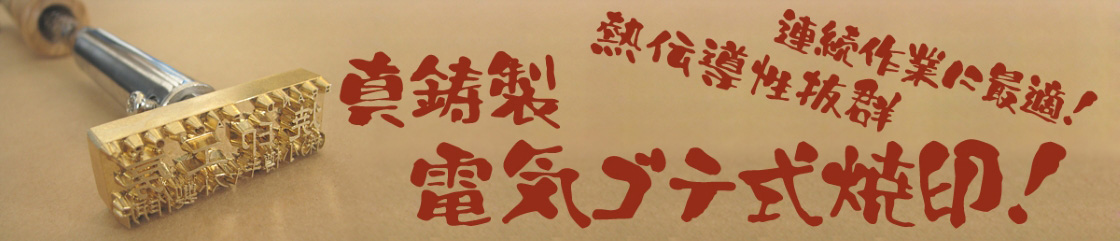 真鋳製
熱伝導性抜群
連続作業に最適!
電気ゴテ式焼印!